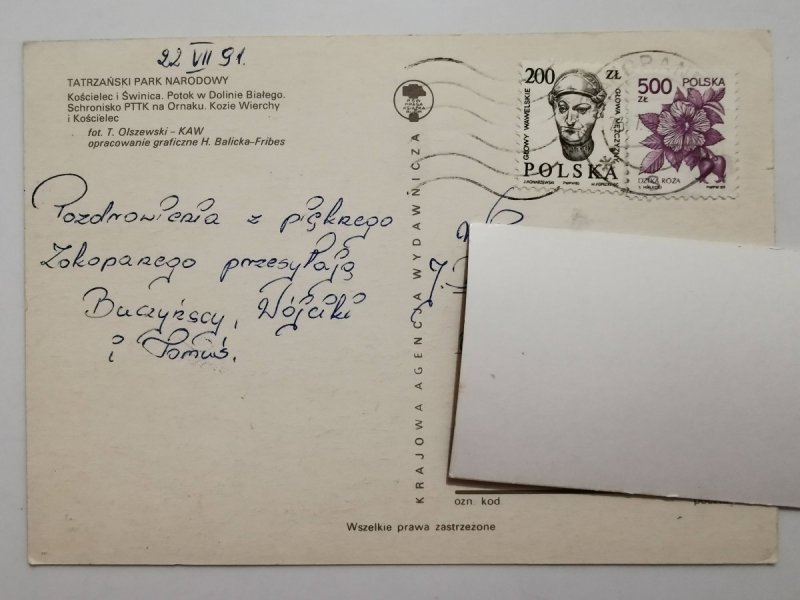 22 VII 91.
TATRZAŃSKI PARK NARODOWY
Kościelec i Świnica. Potok w Dolinie Białego.
Schronisko PTTK na Ornaku. Kozie Wierchy
i Kościelec
fot. T. Olszewski – KAW
opracowanie graficzne H. Balicka-Fribes
Pozdrowienia z pięknego
Zakopanego przesyłają
Buczyńscy, Wójciki
i Tomuś.
KRAJOWA AGENCJA WYDAWNICZA
200 ZŁ
GŁOWY WAWELSKIE
GŁOWA MĘŻCZYZNY
POLSKA
500 ZŁ
POLSKA
DZIKA RÓŻA
ozn. kod
Wszelkie prawa zastrzeżone